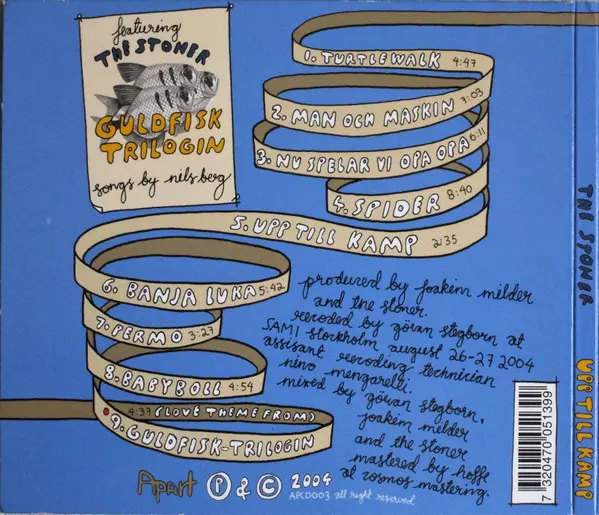 featuring
THE STONER
GULDFISK
TRILOGIN
songs by nils berg
1. TURTLEWALK 4:47
2. MAN OCH MASKIN 7:03
3. NU SPELAR VI OPA OPA 6:11
4. SPIDER 8:40
5. UPP TILL KAMP 2:35
6. BANJA LUKA 5:42
7. PERMO 3:27
8. BABYBOLL 4:54
4:37 (LOVE THEME FROM)
9. GULDFISK-TRILOGIN
produced by joakim milder
and the stoner.
recroded by göran stegborn at
SAMI stockholm august 26-27 2004
assisant recroding technician
nino mengarelli.
mixed by göran stegborn,
joakim milder
and the stoner
mastered by hoffe
at cosmos mastering.
Apart P & C 2004
APCD003 all right reserved
7 320470 051399
THE STONER UPP TILL KAMP